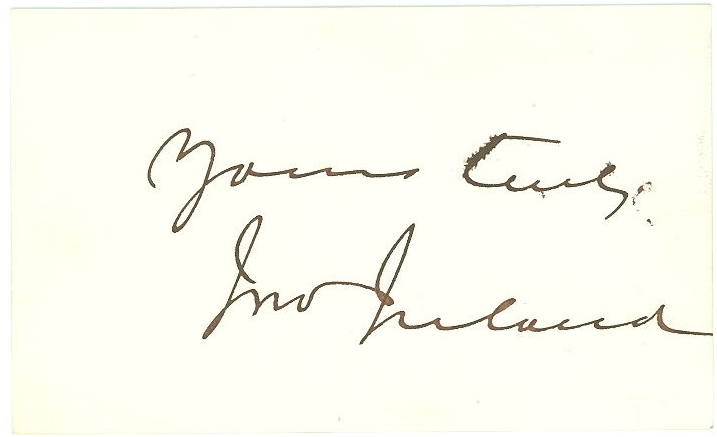 Yours truly
Jno Ireland